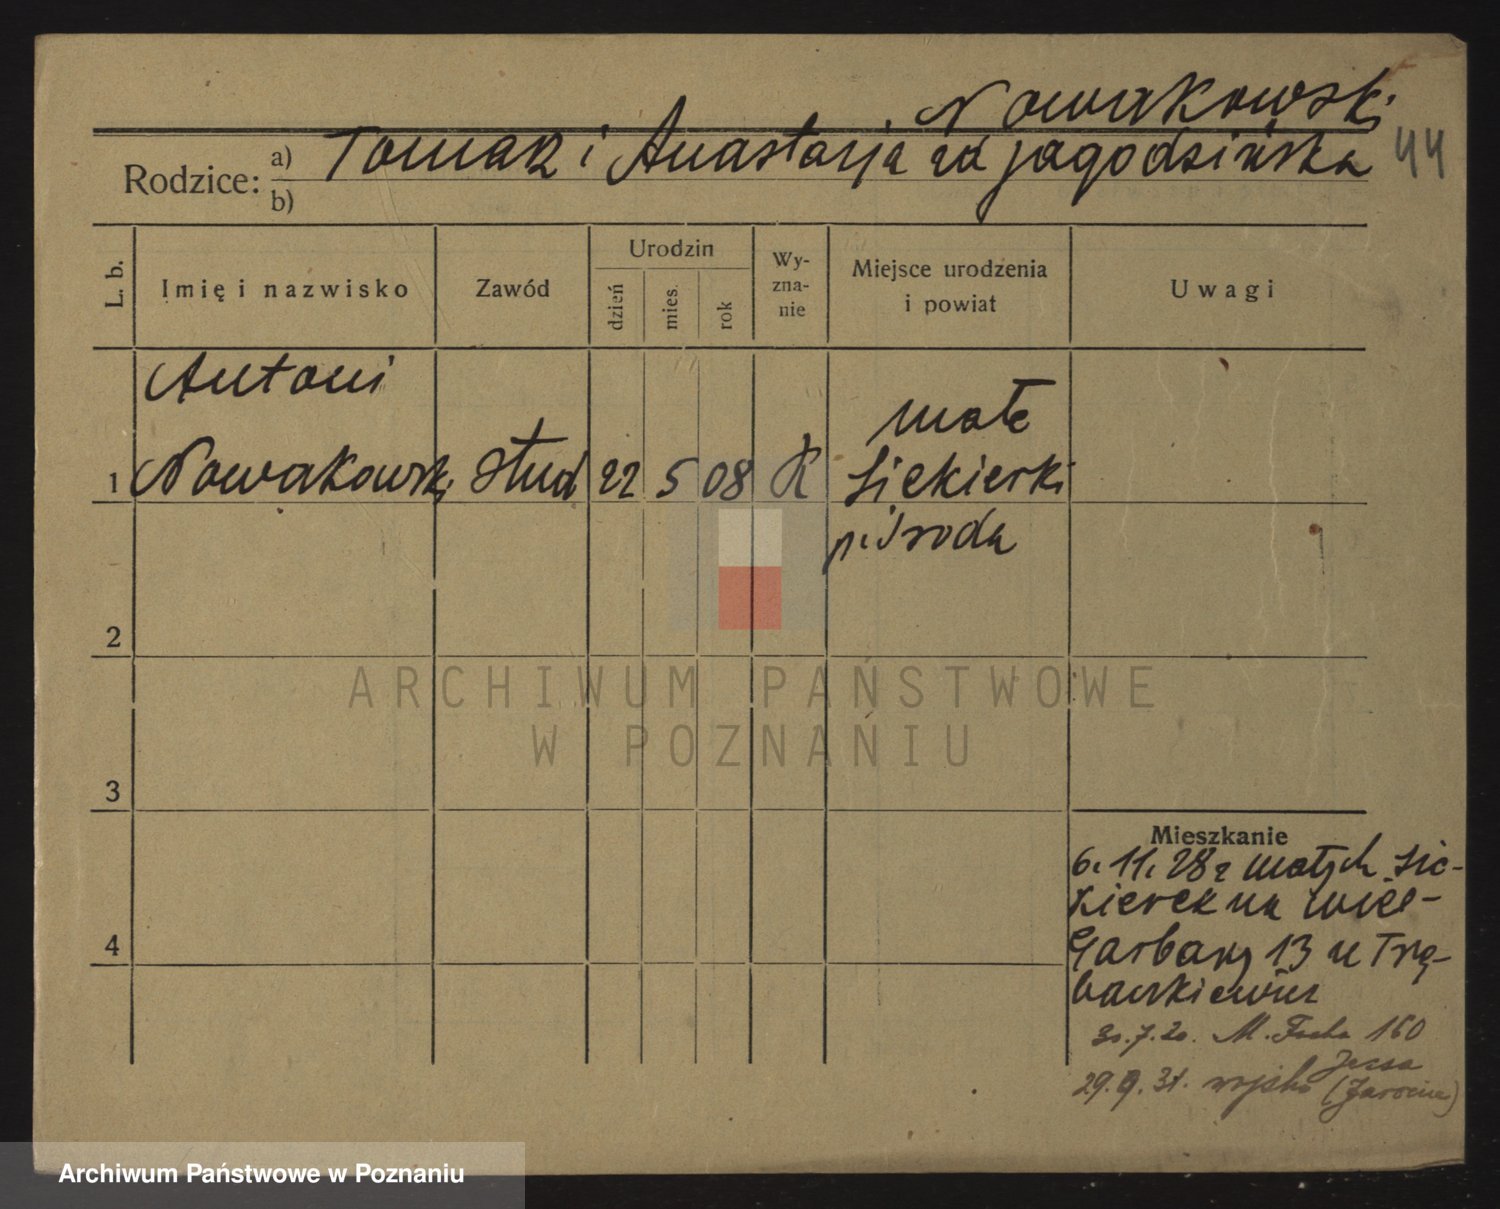 Nowakowski
Rodzice: a) Tomasz i Anastazja zd Jagodzińska 44
b)
L. b.
Imię i nazwisko
Zawód
Urodzin
dzień
mies.
rok
Wy-
zna-
nie
Miejsce urodzenia
i powiat
Uwagi
Antoni
małe
1 Nowakowski stud 22 5 08 K Siekierki
p. Środa
2
ARCHIWUM PAŃSTWOWE
W POZNANIU
3
Mieszkanie
6. 11. 28 z małych Sie-
kierek na Wiel-
Garbary 13 u Trą-
4
30.7.20. M. Focha 160
29.9.31. wojsko (Jarocin)
Archiwum Państwowe w Poznaniu